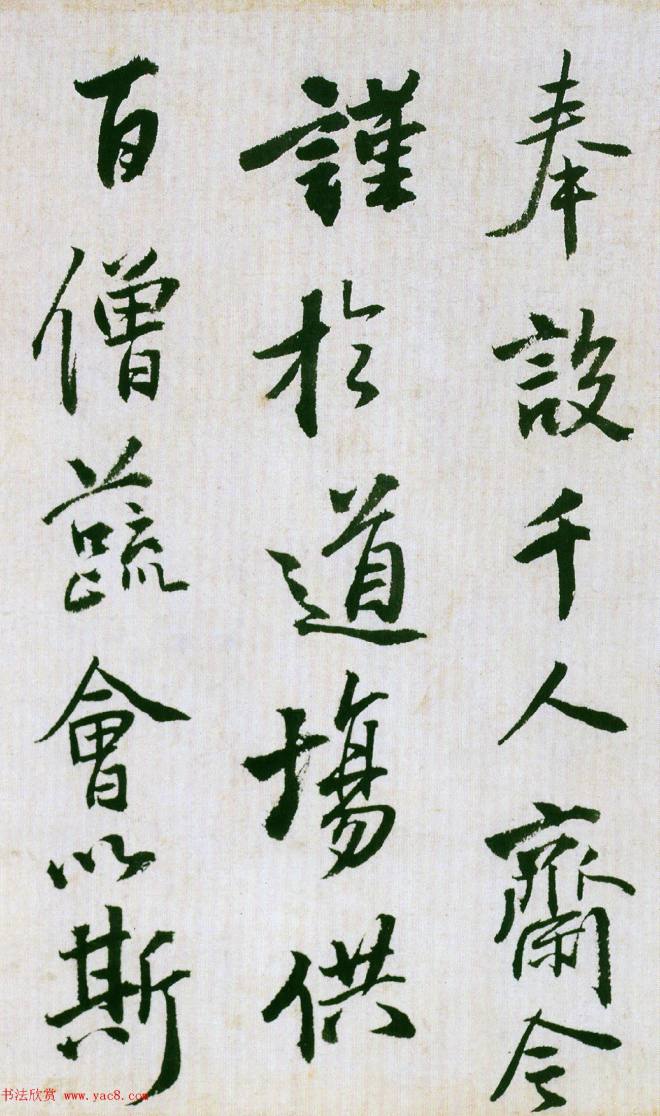 奉設千人齋今
謹於道場供
百僧蔬會以斯
书法欣赏 www.yac8.com